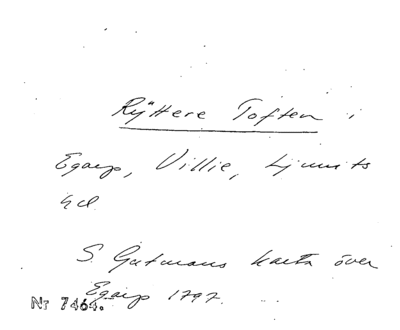 Ryttere Toften i
Egarp, Villie, Ljunits
hd
S. Gutmans karta över
Egarp 1797.
Nr 7464.